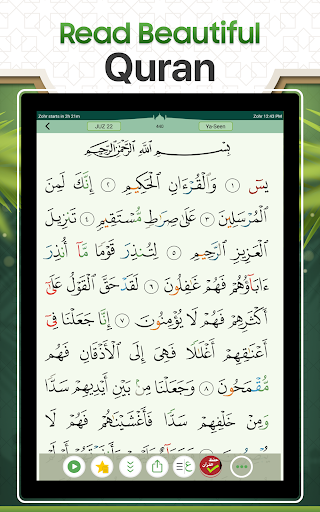 Read Beautiful
Quran
Zohr starts in 2h 21m
Zohr 12:43 PM
JUZ 22
440
Ya-Seen
بِسْمِ ٱللَّهِ ٱلرَّحْمَٰنِ ٱلرَّحِيمِ
يسٓ ١ وَٱلْقُرْءَانِ ٱلْحَكِيمِ ٢ إِنَّكَ لَمِنَ
ٱلْمُرْسَلِينَ ٣ عَلَىٰ صِرَٰطٍ مُّسْتَقِيمٍ ٤ تَنزِيلَ
ٱلْعَزِيزِ ٱلرَّحِيمِ ٥ لِتُنذِرَ قَوْمًا مَّآ أُنذِرَ
ءَابَآؤُهُمْ فَهُمْ غَٰفِلُونَ ٦ لَقَدْ حَقَّ ٱلْقَوْلُ عَلَىٰٓ
أَكْثَرِهِمْ فَهُمْ لَا يُؤْمِنُونَ ٧ إِنَّا جَعَلْنَا فِىٓ
أَعْنَٰقِهِمْ أَغْلَٰلًا فَهِىَ إِلَى ٱلْأَذْقَانِ فَهُم
مُّقْمَحُونَ ٨ وَجَعَلْنَا مِنۢ بَيْنِ أَيْدِيهِمْ سَدًّا
وَمِنْ خَلْفِهِمْ سَدًّا فَأَغْشَيْنَٰهُمْ فَهُمْ لَا